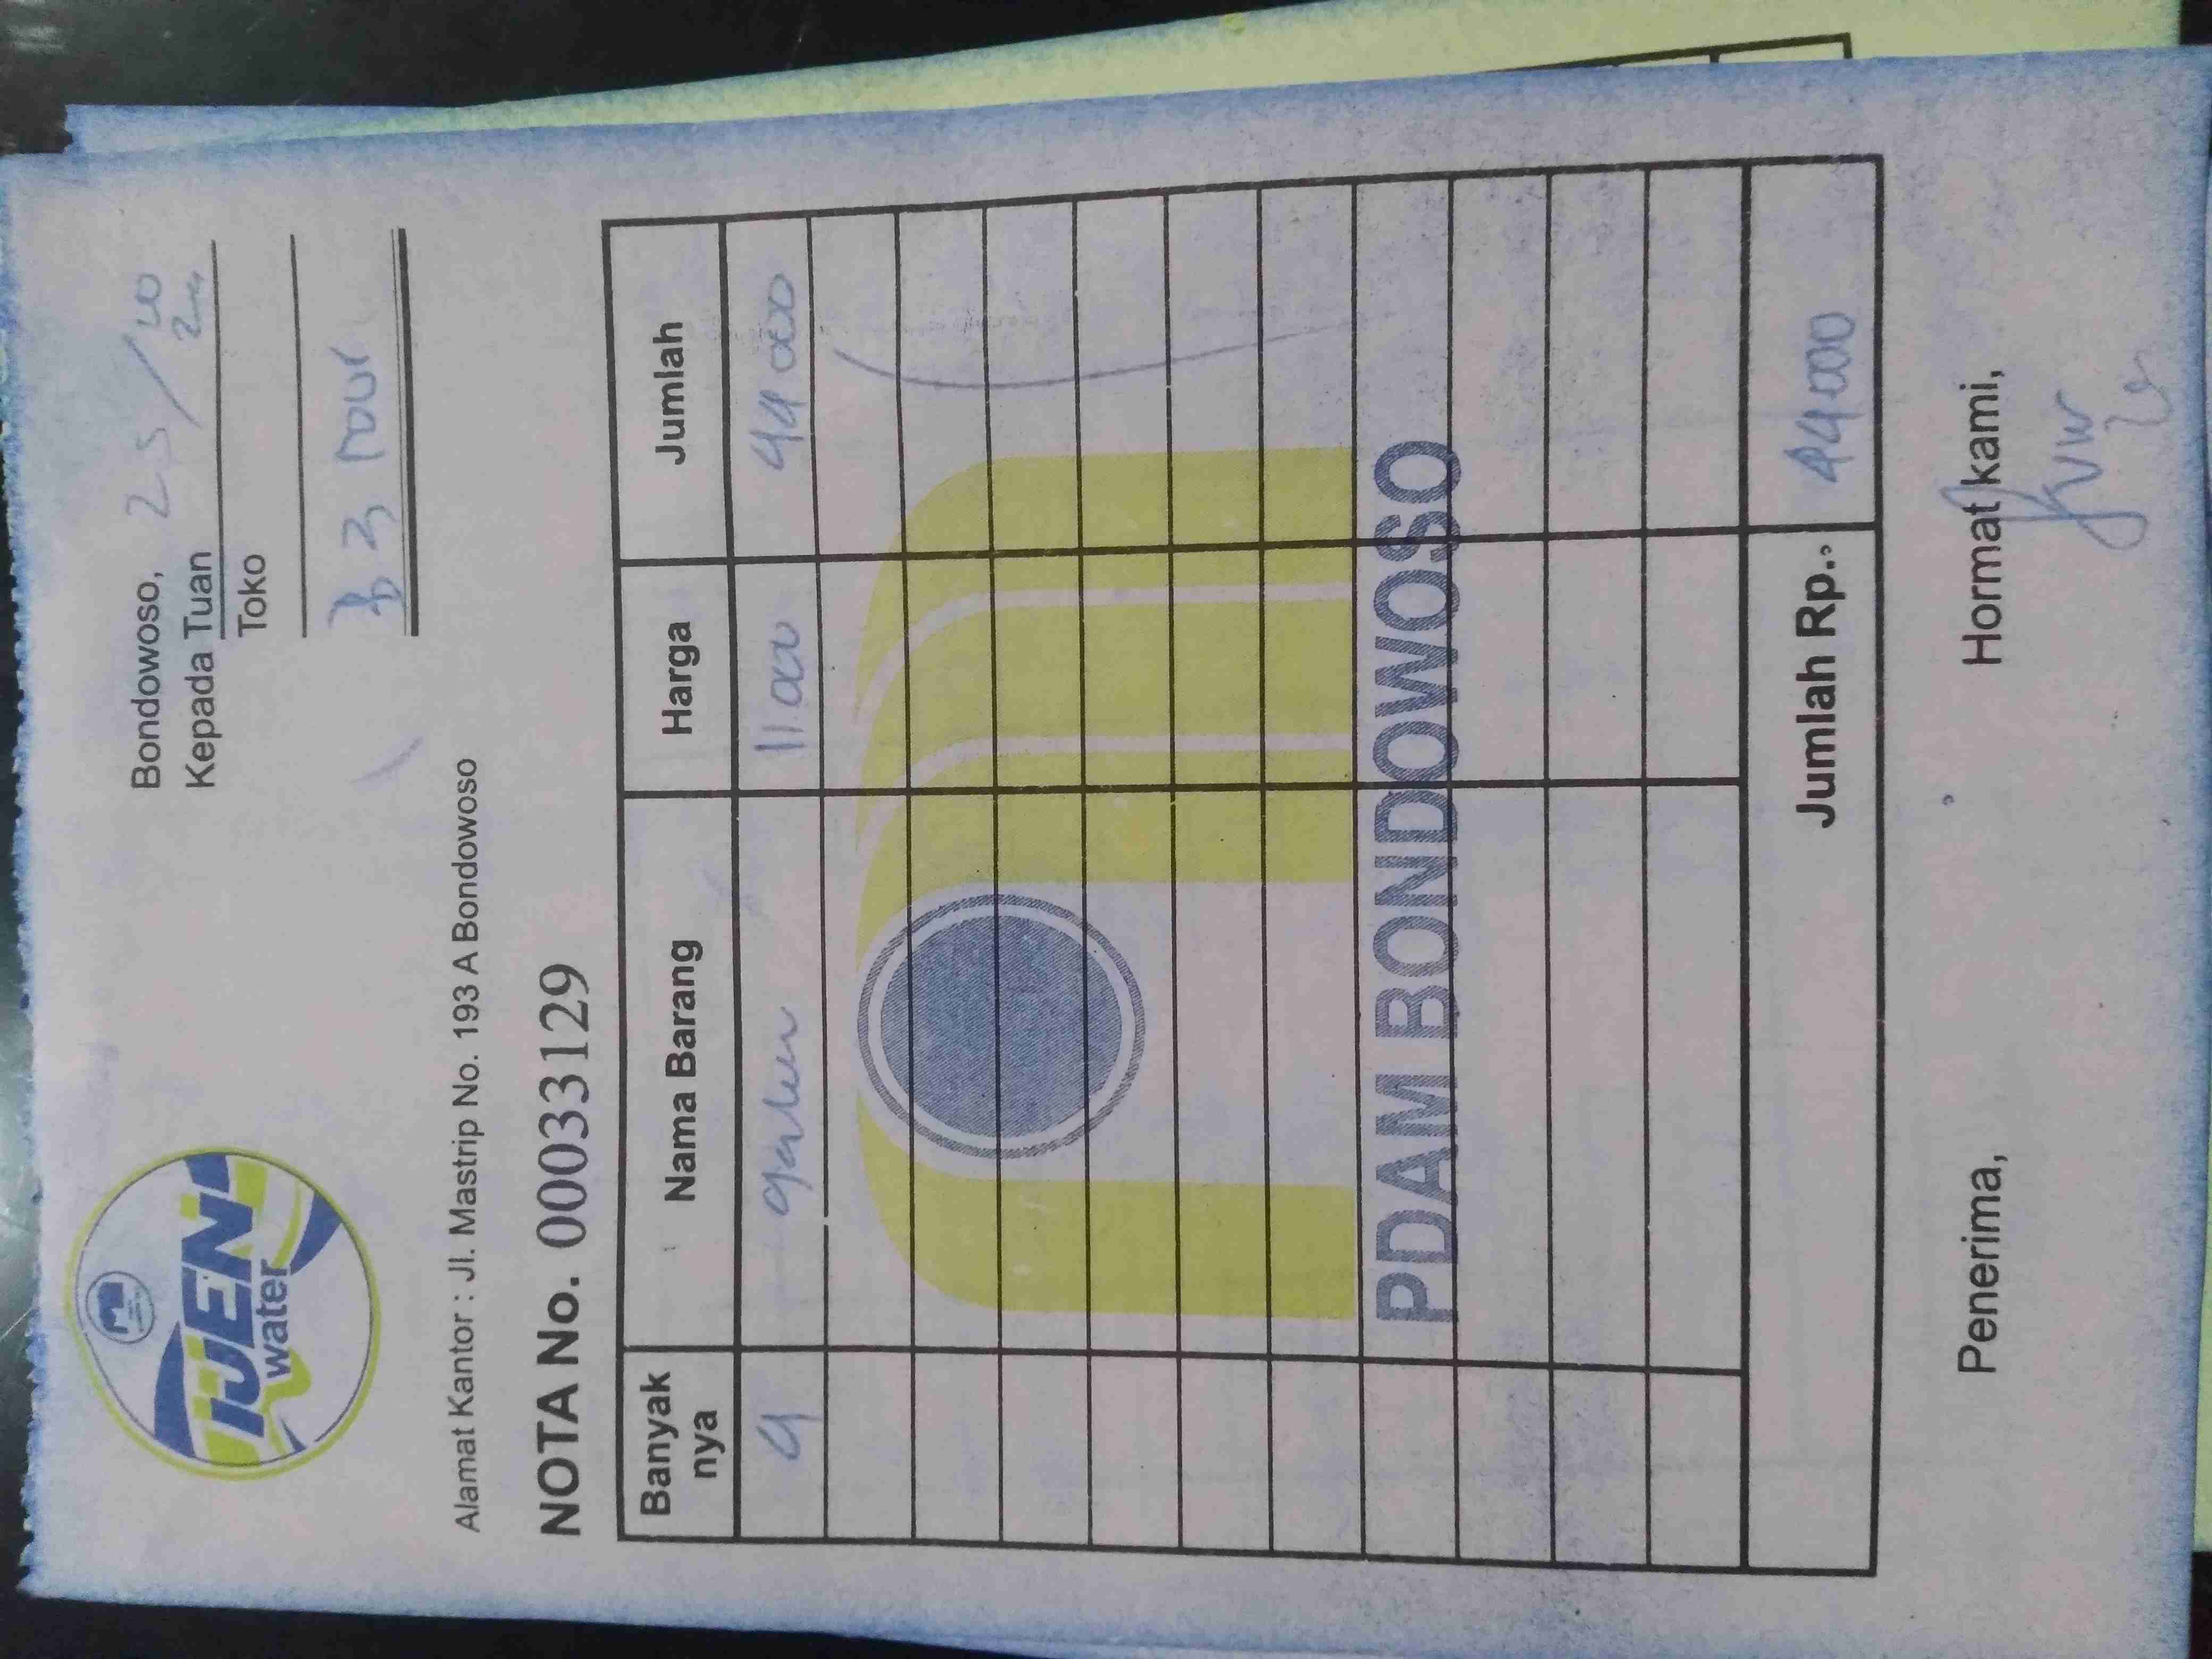 IJEN
water
Bondowoso, 25/10 24
Kepada Tuan
Toko
Alamat Kantor : Jl. Mastrip No. 193 A Bondowoso
NOTA No. 00033129
Banyak nya Nama Barang Harga Jumlah
4 galon 11.000 44 000
PDAM BONDOWOSO
Jumlah Rp. 44000
Penerima, Hormat kami,